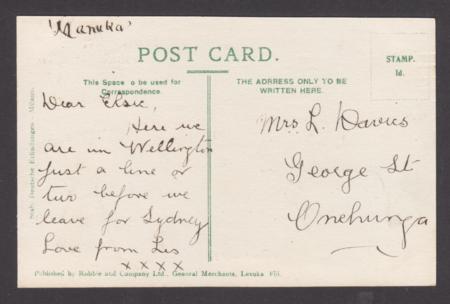 'Manuka'
POST CARD.
STAMP.
1d.
This Space to be used for
Correspondence.
THE ADDRESS ONLY TO BE
WRITTEN HERE.
Dear Elsie,
Here we
are in Wellington
just a line or
two before we
leave for Sydney
Love from Les
x x x x
Mrs L. Davies
George St
Onehunga
Published by Robbie and Company Ltd., General Merchants, Levuka Fiji.